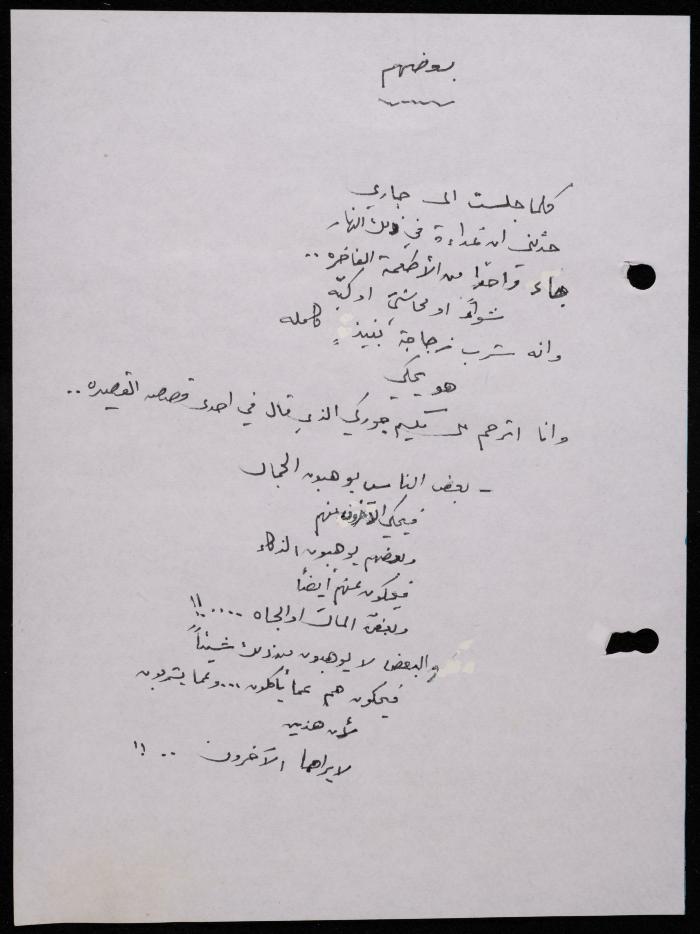 بعضهم
كلما جلست الى جاري
حدثني ان غداءه في ذلك النهار
جاء فاخراً من الأطعمة الفاخره ..
شواءً او محاشي او كبّه
وانه شرب زجاجة نبيذٍ كامله
هو يحكي
وانا اترحم على مكسيم جوركي الذي قال في احدى قصصه القصيره ..
- بعض الناس يوهبون الجمال
فيحكي الآخرون عنهم
وبعضهم يوهبون الذكاء
فيحكون عنهم أيضاً
وبعضٌ المال او الجاه .... !!
والبعض لا يوهبون من ذلك شيئاً
فيحكون هم عما يأكلون ... وعما يشربون
لأن هذين
لا يراهما الآخرون .. !!